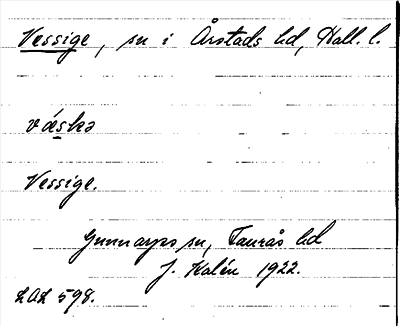 Vessige, sn i Årstads hd, Hall. l.
væskə
Vessige.
Gunnarps sn, Faurås hd
J. Kalén 1922.
LAL 598.